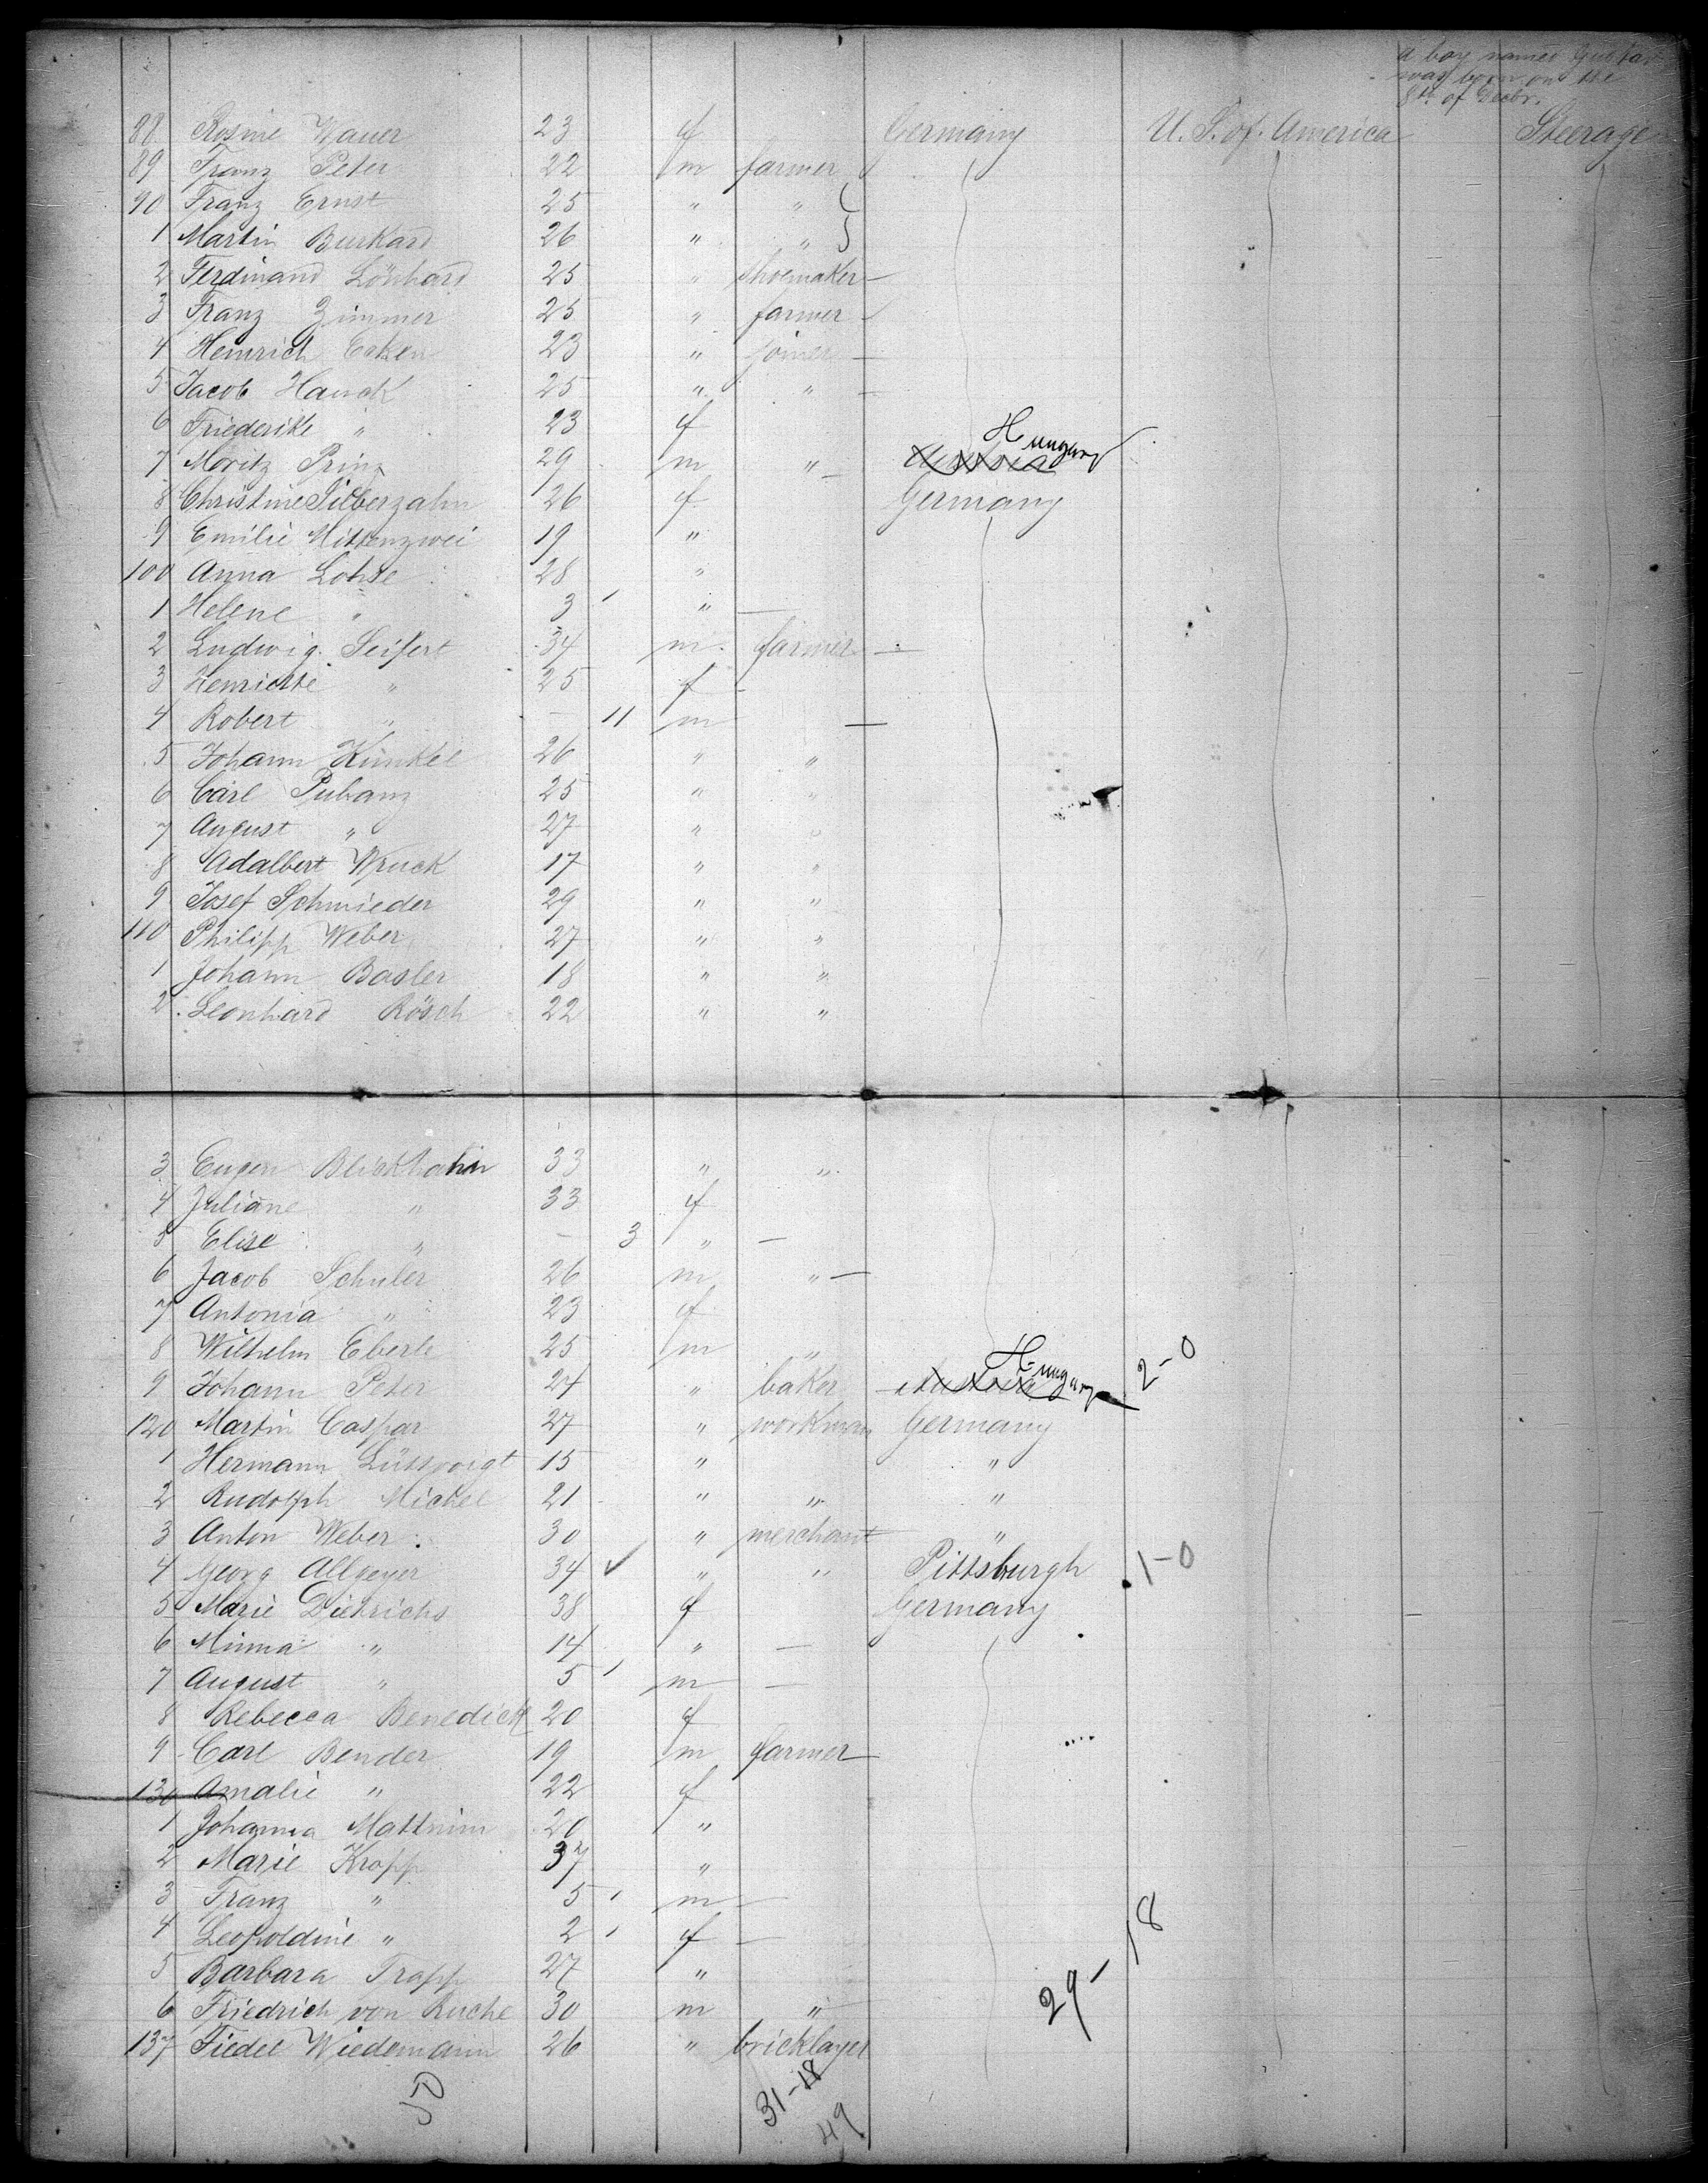 a boy named Gustav
was born on the
8th of Decbr.
88 Rosine Wauer 23 f Germany U. S. of America Steerage
89 Franz Peter 22 m farmer
90 Franz Ernst 25 " "
1 Martin Burkard 26 " "
2 Ferdinand Lönhard 25 " shoemaker
3 Franz Zimmer 25 " farmer
4 Heinrich Ecken 23 " joiner
5 Jacob Hauck 25 " "
6 Friederike " 23 f
7 Moritz Prinz 29 m " Austria Hungary
8 Christine Silberzahn 26 f Germany
9 Emilie Mittenzwei 19 "
100 Anna Lohse 28 "
1 Helene " 3 "
2 Ludwig Seifert 34 m farmer
3 Henriette " 25 f
4 Robert " 11 m
5 Johann Künkel 26 " "
6 Carl Pubanz 25 " "
7 August " 27 " "
8 Adalbert Wruck 17 " "
9 Josef Schmieder 29 " "
110 Philipp Weber 27 " "
1 Johann Basler 18 " "
2 Leonhard Rösch 22 " "
3 Eugen Blickhahn 33 " "
4 Juliane " 33 f
5 Elise " - 3 " -
6 Jacob Schuler 26 m "
7 Antonia " 23 f
8 Wilhelm Eberle 25 m "
9 Johann Peter 24 " baker Austria Hungary 2-0
120 Martin Caspar 27 " workman Germany
1 Hermann 15 " "
2 Rudolph Michel 21 " " "
3 Anton Weber 30 " merchant "
4 Georg Allgeyer 34 " " Pittsburgh 1-0
5 Marie Dietrichs 38 f Germany
6 Minna " 14 " -
7 August " 5 m -
8 Rebecca Benedick 20 f
9 Carl Bender 19 m farmer
130 Amalie " 22 f
1 Johanna 20 "
2 Marie Kropp 37 "
3 Franz " 5 m -
4 Leopoldine " 2 f -
5 Barbara Trapp 27 "
6 Friedrich von Ruche 30 m "
137 Fidel Wiedemann 26 " bricklayer
29-18
50
31-18
49